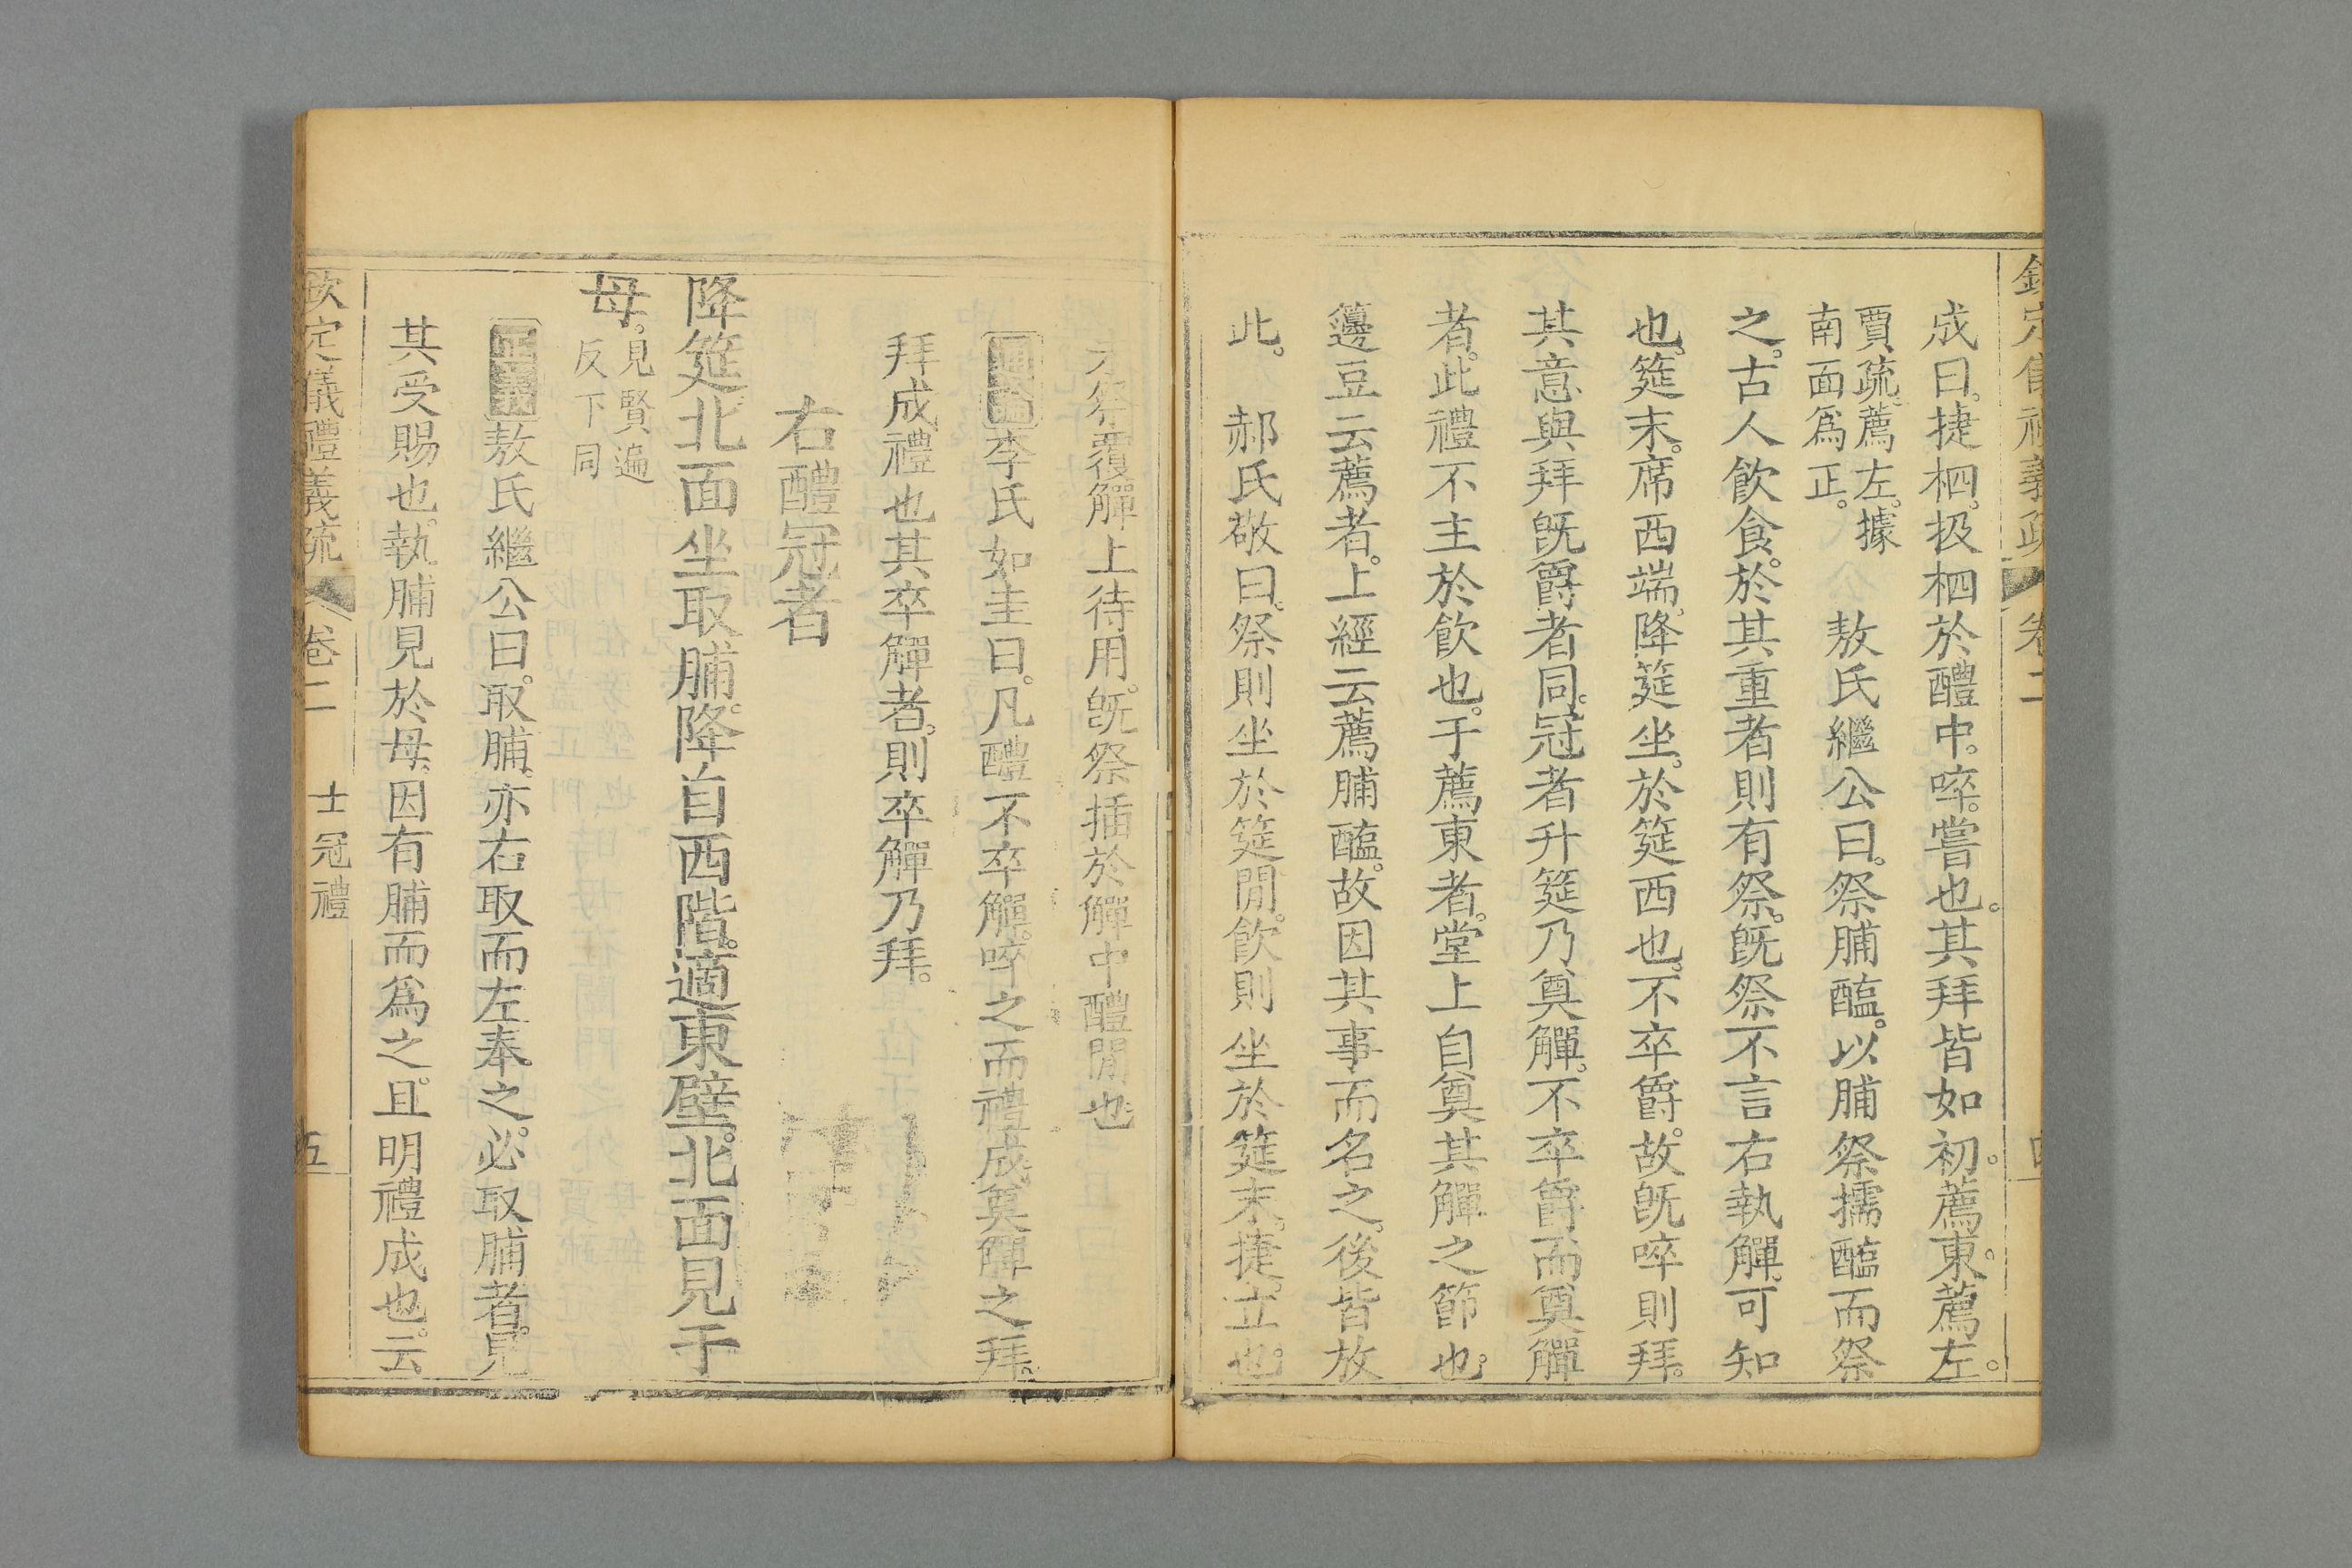 成曰。捷柶。扱柶於醴中。啐。嘗也。其拜皆如初。薦東。薦左。
賈疏。薦左。據
南面爲正。
敖氏繼公曰。祭脯醢。以脯祭擩醢而祭
之。古人飲食。於其重者則有祭。旣祭不言右執觶。可知
也。筵末。席西端。降筵坐。於筵西也。不卒爵。故旣啐則拜。
其意與拜旣爵者同。冠者升筵乃奠觶。不卒爵而奠觶
者。此禮不主於飲也。于薦東者。堂上自奠其觶之節也。
籩豆云薦者。上經云薦脯醢。故因其事而名之。後皆放
此。 郝氏敬曰。祭則坐於筵閒。飲則坐於筵末。捷立也。
未祭覆觶上待用。旣祭插於觶中醴閒也
通論李氏如圭曰。凡醴不卒觶。啐之而禮成奠觶之拜。
拜成禮也其卒觶者。則卒觶乃拜。
右醴冠者
降筵北面坐取脯。降自西階。適東壁。北面見于
母。
見賢遍
反下同
正義敖氏繼公曰。取脯。亦右取而左奉之。必取脯者。見
其受賜也。執脯見於母。因有脯而爲之。且明禮成也。云。
欽定儀禮義疏 卷二 士冠禮 五